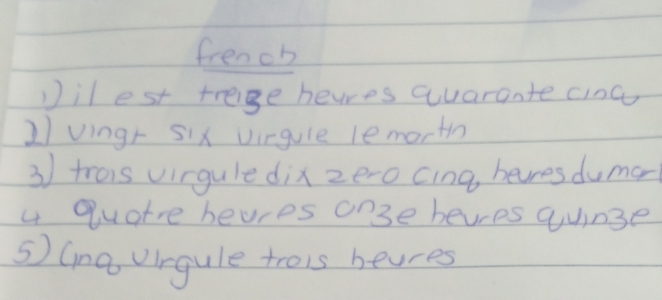 french
1) il est treize heures quarante cinq
2) vingt six virgule le martin
3) trois virgule dix zero cinq heures du mar
4 quatre heures onze heures quinze
5) Cinq virgule trois heures